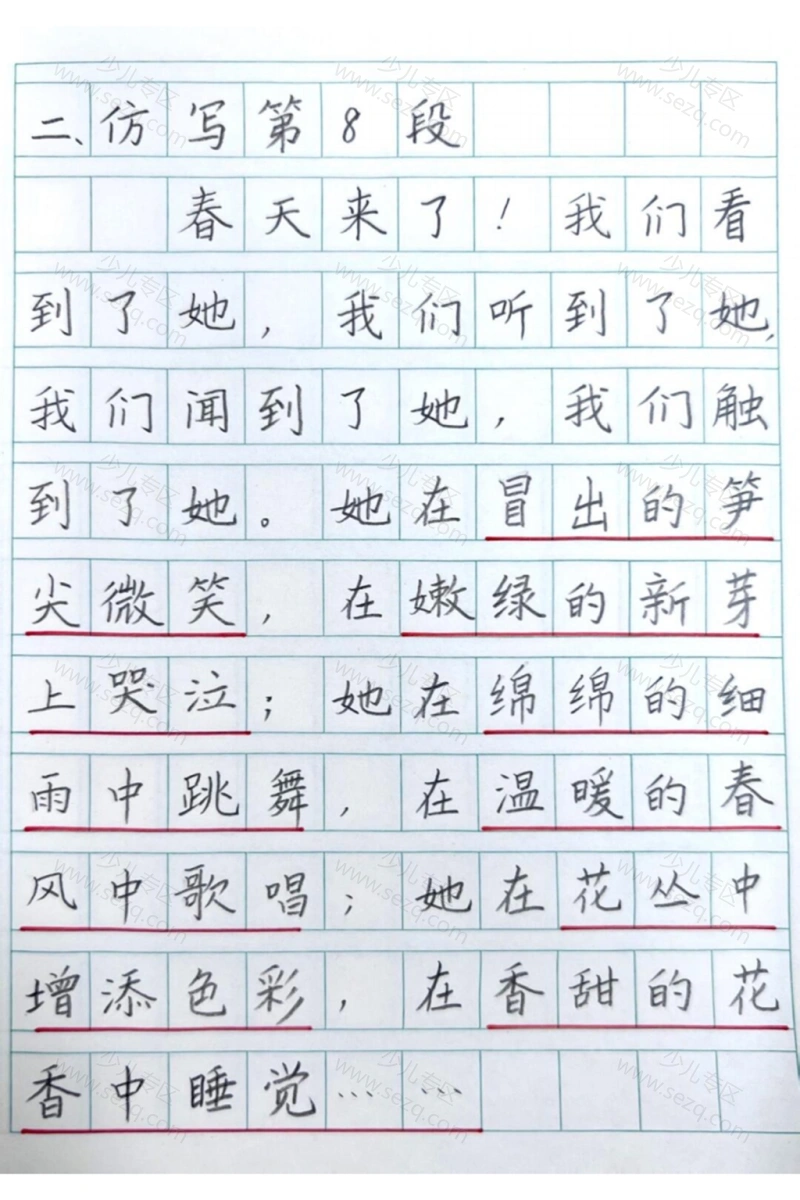 二、仿写第8段
春天来了!我们看
到了她,我们听到了她,
我们闻到了她,我们触
到了她。她在冒出的笋
尖微笑,在嫩绿的新芽
上哭泣;她在绵绵的细
雨中跳舞,在温暖的春
风中歌唱;她在花丛中
增添色彩,在香甜的花
香中睡觉……
少儿专区
www.sezq.com